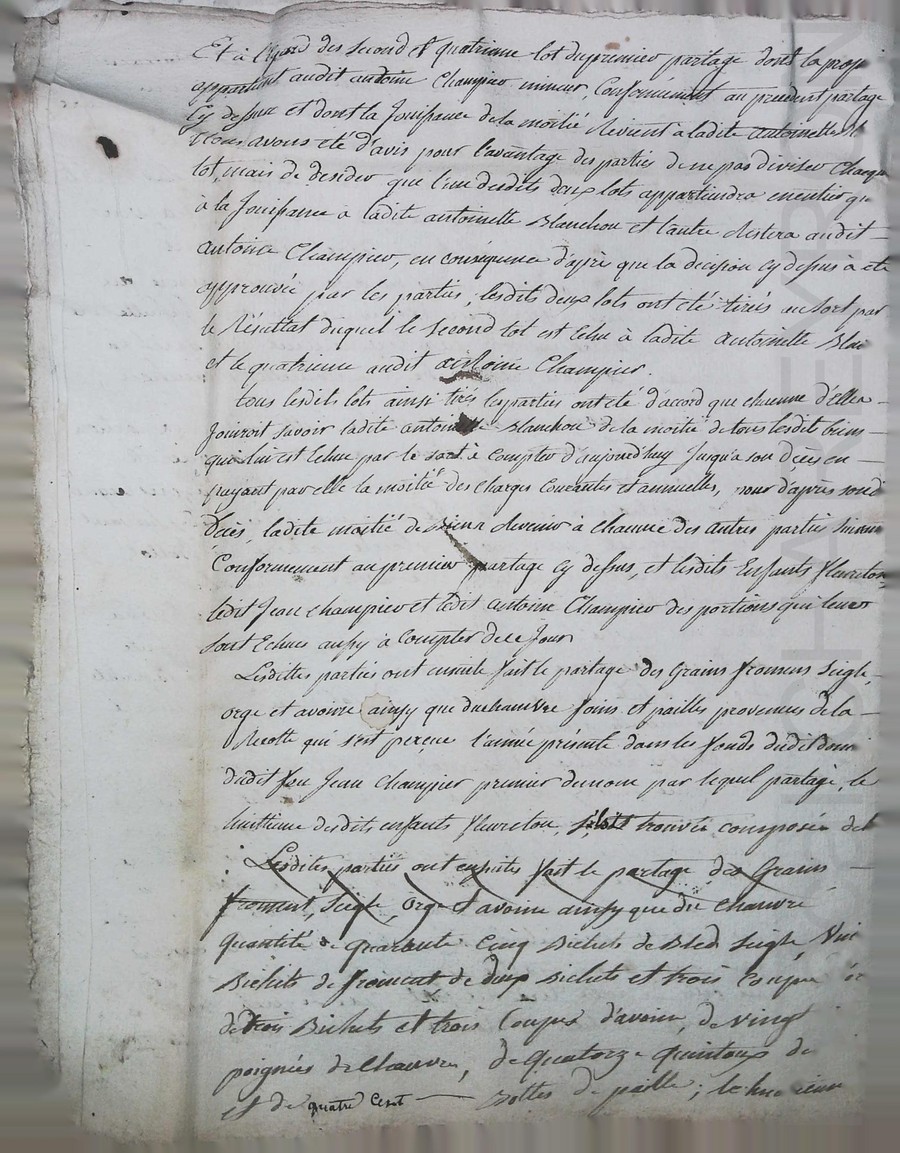 Et à l'égard des second et quatrieme lot du premier partage dont la prop
appartient audit antoine Champier mineur, Conformément au precedent partage
Cy dessus et dont la Jouissance de la moitié Revient à ladite antoinette Bl
Nous avons été d'avis pour l'avantage des parties de ne pas diviser Chaque
lot, mais de desider que l'un desdits deux lots appartiendra en entier qu
à la Jouissance à ladite antoinette Blanchon et l'autre Restera audit
antoine Champier, en conséquence d'après que la decision cy dessus à eté
approuvée par les parties, lesdits deux lots ont été tirés au sort par
le Résultat duquel le second lot est Echu à ladite antoinette Blan
et le quatrieme audit antoine Champier.
tous lesdits lots ainsi tirés les parties ont été d'accord que chacune d'elles
Jouiroit savoir ladite antoinette Blanchon de la moitié de tous lesdit biens
qui lui est Echue par le sort à compter d'aujourd'huy Jusqu'a son déces en
payant par elle la moitié des Charges Courantes et annuelles, pour d'après son d
Décès, ladite moitié de Biens Revenir à chacune des autres parties
Conformement au premier partage cy dessus, et lesdits Enfants fleureton
ledit Jean Champier et ledit antoine Champier des portions qui leurs
sont Echues aussy à Compter de ce Jour
Lesdittes parties ont ensuite fait le partage des Grains fromens Seigle,
orge et avoine ainsy que du chanvre foins et pailles provenus de la
Recolte qui s'est perçue l'année présente dans les fonds dudit dom
dudit feu Jean Champier premier du nom par lequel partage, le
huittieme desdits enfants fleureton, trouvée composée de
Lesdites parties ont ensuite fait le partage des Grains
froment, Seigle, Orge et avoine ainsy que du Chanvre
quantité de quarante Cinq Bichets de Bled Seigle,
Bichets de froment de deux Bichets et trois Coupes
de trois Bichets et trois Coupes d'avoine, de vingt
poignées de Chanvre, de quatorze quintaux de
et de quatre Cent Bottes de paille; le